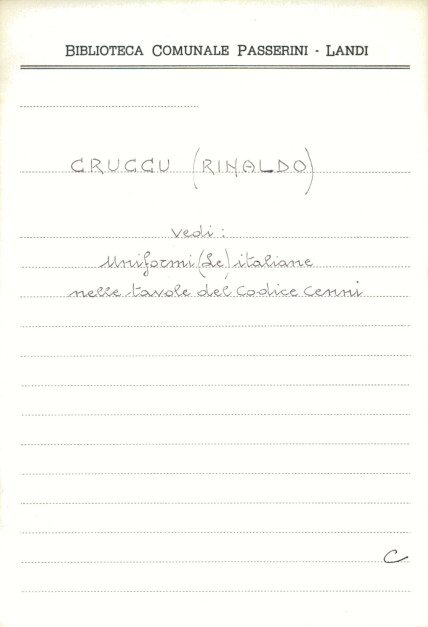 BIBLIOTECA COMUNALE PASSERINI - LANDI
CRUCCU (RINALDO)
vedi:
Uniformi (Le) italiane
nelle tavole del Codice Cenni
C